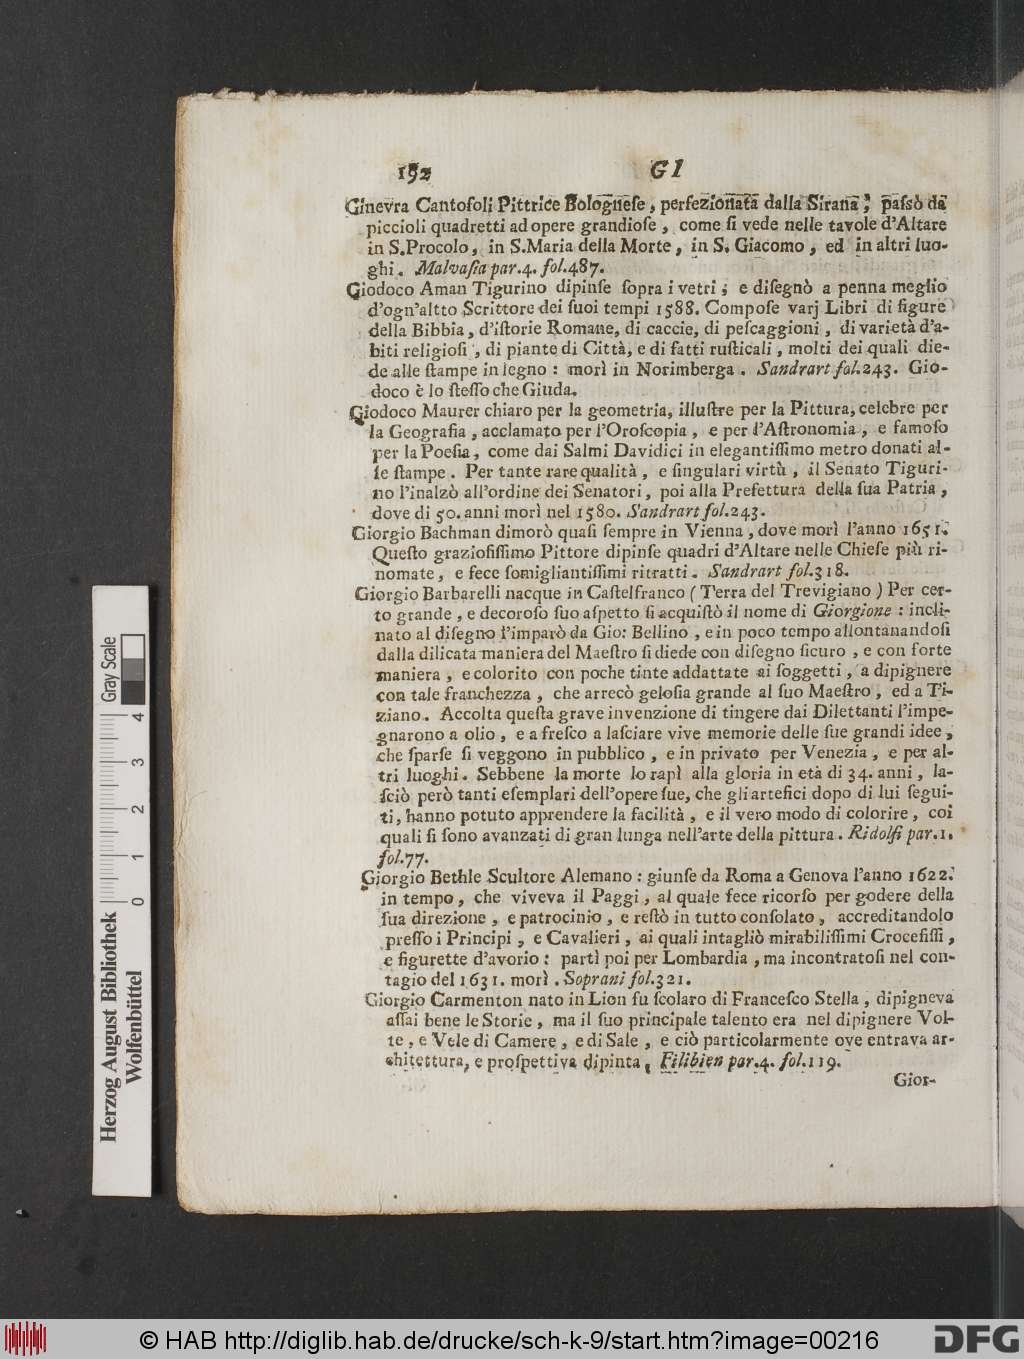 192 GI
Ginevra Cantofoli Pittrice Bolognese, perfezionata dalla Sirana; paſsò da
piccioli quadretti ad opere grandioſe, come ſi vede nelle tavole d'Altare
in S. Procolo, in S. Maria della Morte, in S. Giacomo, ed in altri luo-
ghi. Malvaſia par.4. fol.487.
Giodoco Aman Tigurino dipinſe ſopra i vetri; e diſegnò a penna meglio
d'ogn'altto Scrittore dei ſuoi tempi 1588. Compoſe varj Libri di figure
della Bibbia, d'iſtorie Romane, di caccie, di peſcaggioni, di varietà d'a-
biti religioſi, di piante di Città, e di fatti ruſticali, molti dei quali die-
de alle ſtampe in legno: morì in Norimberga. Sandrart fol.243. Gio-
doco è lo ſteſſo che Giuda.
Giodoco Maurer chiaro per la geometria, illuſtre per la Pittura, celebre per
la Geografia, acclamato per l'Oroſcopia, e per l'Aſtronomia, e famoſo
per la Poeſia, come dai Salmi Davidici in elegantiſſimo metro donati al-
le ſtampe. Per tante rare qualità, e ſingulari virtù, il Senato Tiguri-
no l'inalzò all'ordine dei Senatori, poi alla Prefettura della ſua Patria,
dove di 50. anni morì nel 1580. Sandrart fol.243.
Giorgio Bachman dimorò quaſi ſempre in Vienna, dove morì l'anno 1651.
Queſto grazioſiſſimo Pittore dipinſe quadri d'Altare nelle Chieſe più ri-
nomate, e fece ſomigliantiſſimi ritratti. Sandrart fol.318.
Giorgio Barbarelli nacque in Caſtelfranco (Terra del Trevigiano) Per cer-
to grande, e decoroſo ſuo aſpetto ſi acquiſtò il nome di Giorgione: incli-
nato al diſegno l'imparò da Gio: Bellino, e in poco tempo allontanandoſi
dalla dilicata maniera del Maeſtro ſi diede con diſegno ſicuro, e con forte
maniera, e colorito con poche tinte addattate ai ſoggetti, a dipignere
con tale franchezza, che arrecò geloſia grande al ſuo Maeſtro, ed a Ti-
ziano. Accolta queſta grave invenzione di tingere dai Dilettanti l'impe-
gnarono a olio, e a freſco a laſciare vive memorie delle ſue grandi idee,
che ſparſe ſi veggono in pubblico, e in privato per Venezia, e per al-
tri luoghi. Sebbene la morte lo rapì alla gloria in età di 34. anni, la-
ſciò però tanti eſemplari dell'opere ſue, che gli artefici dopo di lui ſegui-
ti, hanno potuto apprendere la facilità, e il vero modo di colorire, coi
quali ſi ſono avanzati di gran lunga nell'arte della pittura. Ridolfi par.1.
fol.77.
Giorgio Bethle Scultore Alemano: giunſe da Roma a Genova l'anno 1622.
in tempo, che viveva il Paggi, al quale fece ricorſo per godere della
ſua direzione, e patrocinio, e reſtò in tutto conſolato, accreditandolo
preſſo i Principi, e Cavalieri, ai quali intagliò mirabiliſſimi Crocefiſſi,
e figurette d'avorio: partì poi per Lombardia, ma incontratoſi nel con-
tagio del 1631. morì. Soprani fol.321.
Giorgio Carmenton nato in Lion fu ſcolaro di Franceſco Stella, dipigneva
aſſai bene le Storie, ma il ſuo principale talento era nel dipignere Vol-
te, e Vele di Camere, e di Sale, e ciò particolarmente ove entrava ar-
chitettura, e proſpettiva dipinta, Filibien par.4. fol.119.
Gior-
Herzog August Bibliothek
Wolfenbüttel
0 1 2 3 4
Gray Scale
© HAB http://diglib.hab.de/drucke/sch-k-9/start.htm?image=00216
DFG